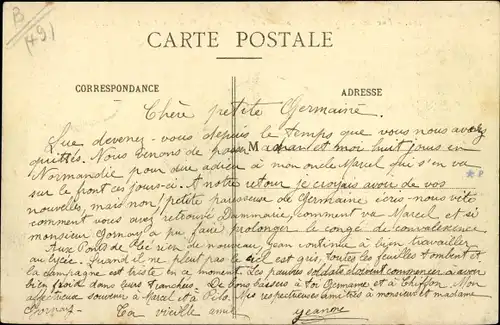 B
1491
CARTE POSTALE
CORRESPONDANCE
ADRESSE
Chère petite Germaine.
Que devenez-vous depuis le temps que vous nous avez
quittés. Nous venons de passer Maman et moi huit jours en
Normandie pour dire adieu à mon oncle Marcel qui s'en va
sur le front ces jours-ci. A notre retour je croyais avoir de vos
nouvelles, mais non! petite paresseuse de Germaine écris-nous vite
comment vous avez retrouvé Dammarie, comment va Marcel et si
monsieur a pu faire prolonger le congé de convalescence
Aux Ponts de Cé rien de nouveau, Jean continue à bien travailler
au lycée. Quand il ne pleut pas le ciel est gris, toutes les feuilles tombent et
la campagne est triste en ce moment. Les pauvres soldats doivent commencer à avoir
bien froid dans leurs tranchées. De bons baisers à toi Germaine et à Chiffon. Mon
affectueux souvenir à Marcel et à Mes respectueuses amitiés à monsieur et madame
Ta vieille amie
Jeanne